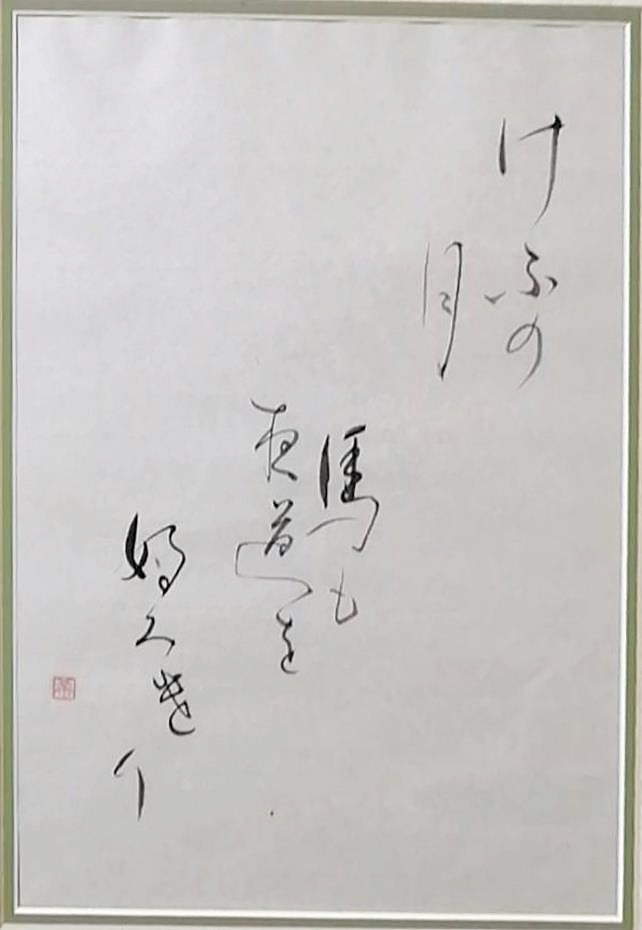 けふの
月
馬も
夜道を
好みけり